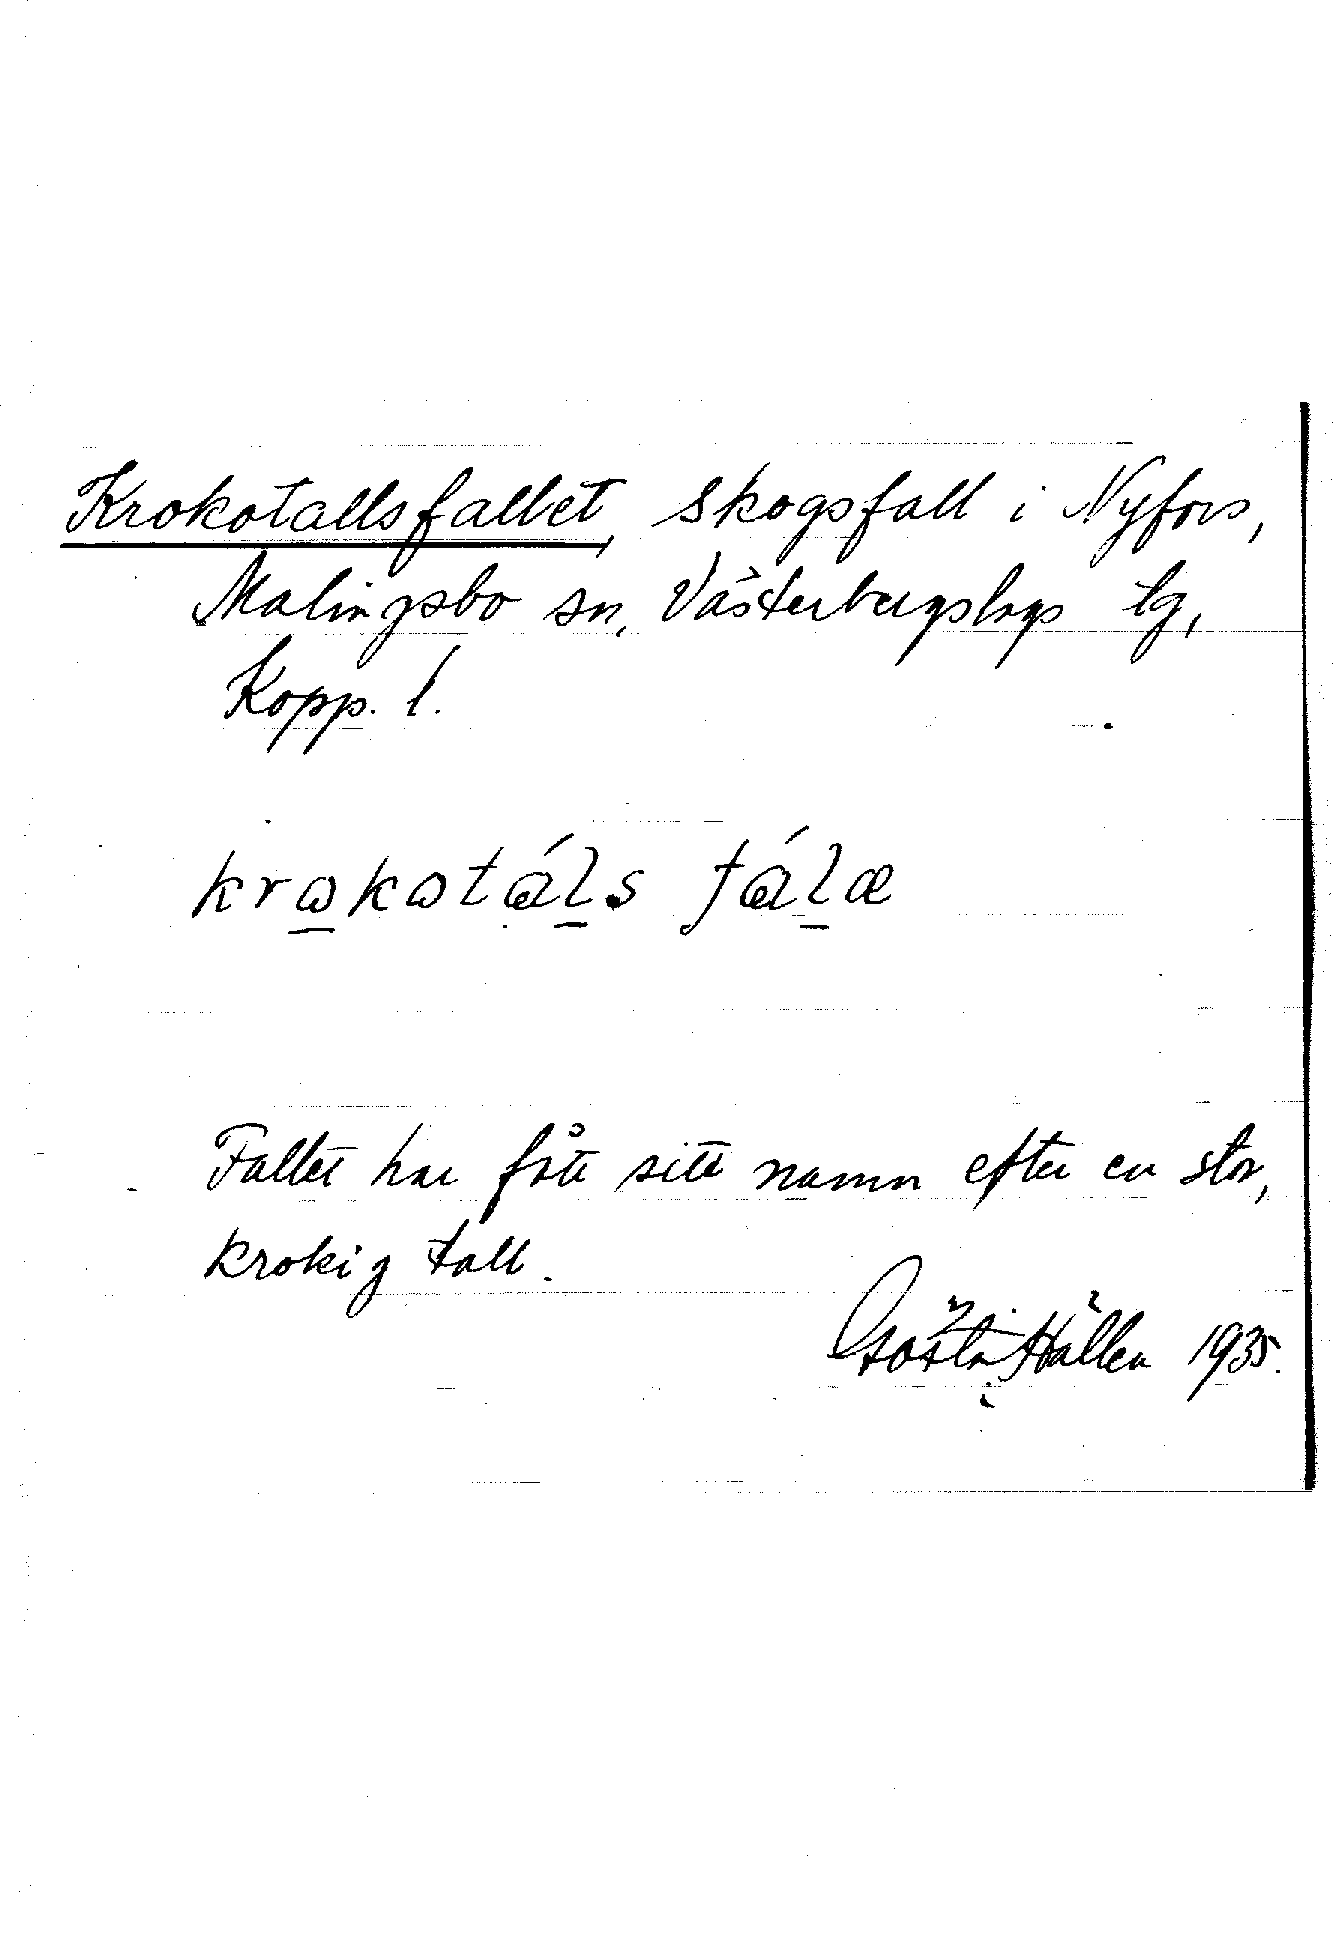 Krokotallsfallet, skogsfall i Nyfors,
Malingsbo sn, Västerbergslags tg,
Kopp. l.
krωkωtáls fálæ
Fallet har fått sitt namn efter en stor,
krokig tall.
Gösta Hällen 1935.